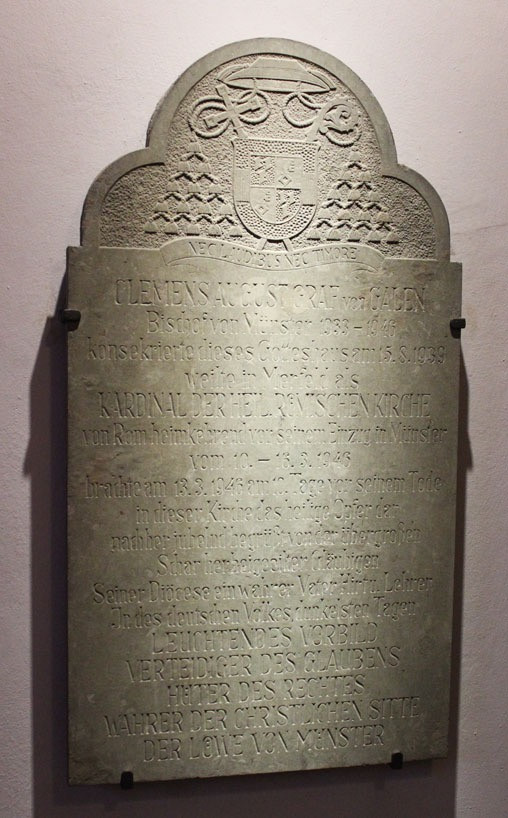 NEC LAUDIBUS NEC TIMORE
CLEMENS AUGUST GRAF von GALEN
Bischof von Münster 1933 – 1946
konsekrierte dieses Gotteshaus am 15.8.1939
weilte in Merfeld als
KARDINAL DER HEIL. RÖMISCHEN KIRCHE
von Rom heimkehrend vor seinem Einzug in Münster
vom 10. – 16.3.1946
brachte am 13.3.1946 am 10. Tage vor seinem Tode
in dieser Kirche das heilige Opfer dar
nachher jubelnd begrüßt von der übergroßen
Schar herbeigeeilter Gläubigen
Seiner Diöcese ein wahrer Vater Hirt u. Lehrer
In des deutschen Volkes dunkelsten Tagen
LEUCHTENDES VORBILD
VERTEIDIGER DES GLAUBENS,
HÜTER DES RECHTES
WAHRER DER CHRISTLICHEN SITTE
DER LÖWE VON MÜNSTER